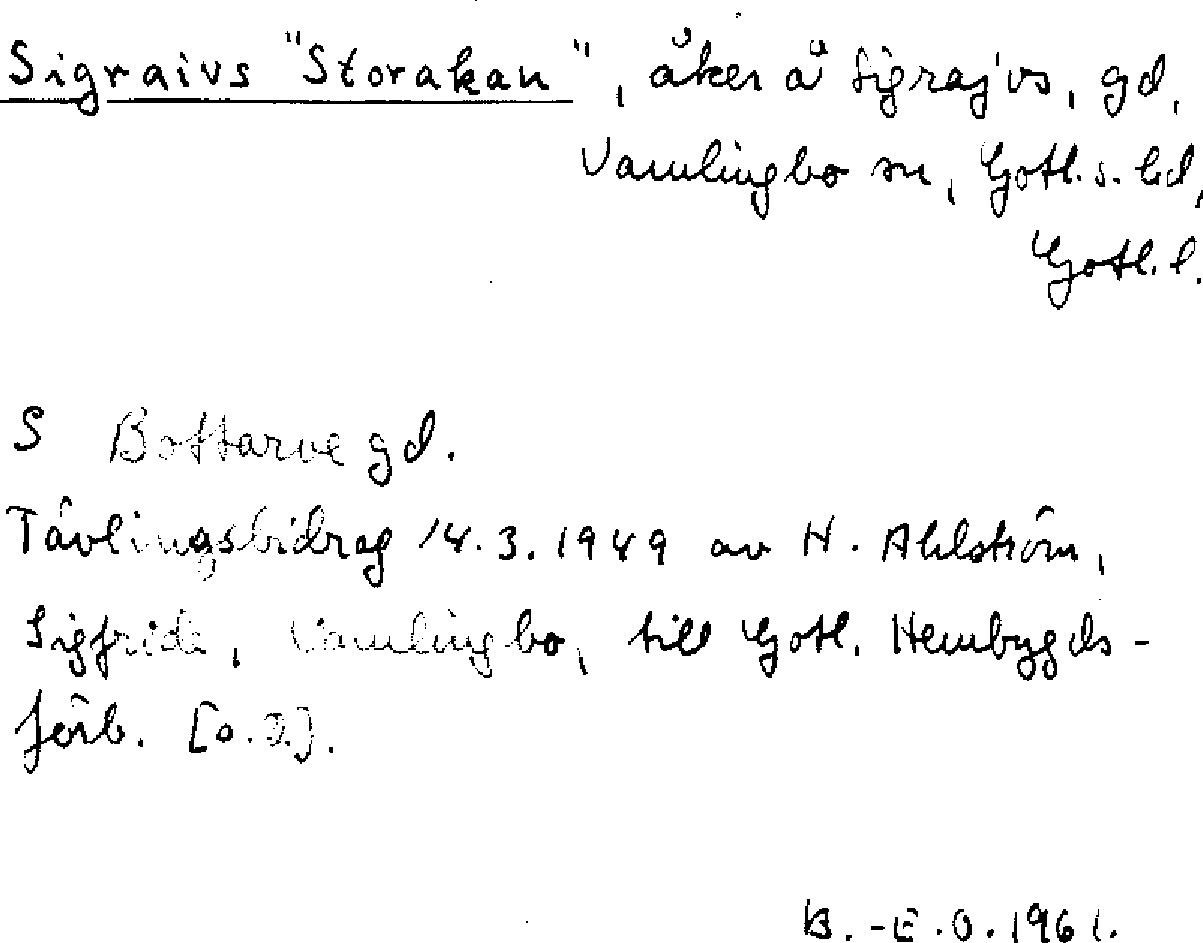 Sigraivs "Storakan", åker å Sigrajvs, gd,
Vamlingbo sn, Gotl. s. hd,
Gotl. l.
S Bottarve gd.
Tävlingsbidrag 14.3.1949 av H. Ahlström,
Sigfride, Vamlingbo, till Gotl. Hembygds-
förb. [o.O.].
B.-E.O. 1961.